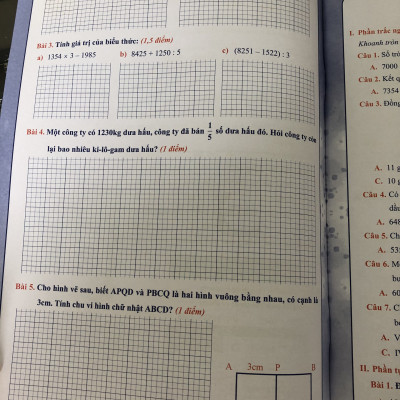 Bài 3. Tính giá trị của biểu thức: (1,5 điểm)
a) 1354 × 3 – 1985
b) 8425 + 1250 : 5
c) (8251 – 1522) : 3
Bài 4. Một công ty có 1230kg dưa hấu, công ty đã bán 1/5 số dưa hấu đó. Hỏi công ty còn
lại bao nhiêu ki-lô-gam dưa hấu? (1 điểm)
Bài 5. Cho hình vẽ sau, biết APQD và PBCQ là hai hình vuông bằng nhau, có cạnh là
3cm. Tính chu vi hình chữ nhật ABCD? (1 điểm)
A 3cm P B
I. Phần trắc
Khoanh tròn
Câu 1. Số
A. 7000
Câu 2. Kết
A. 7354
Câu 3.
A. 11
C. 10
Câu 4. Có
A. 648
Câu 5.
A.
Câu 6.
A. 60
Câu 7. C
A. V
C.
II. Phần
Bài 1.